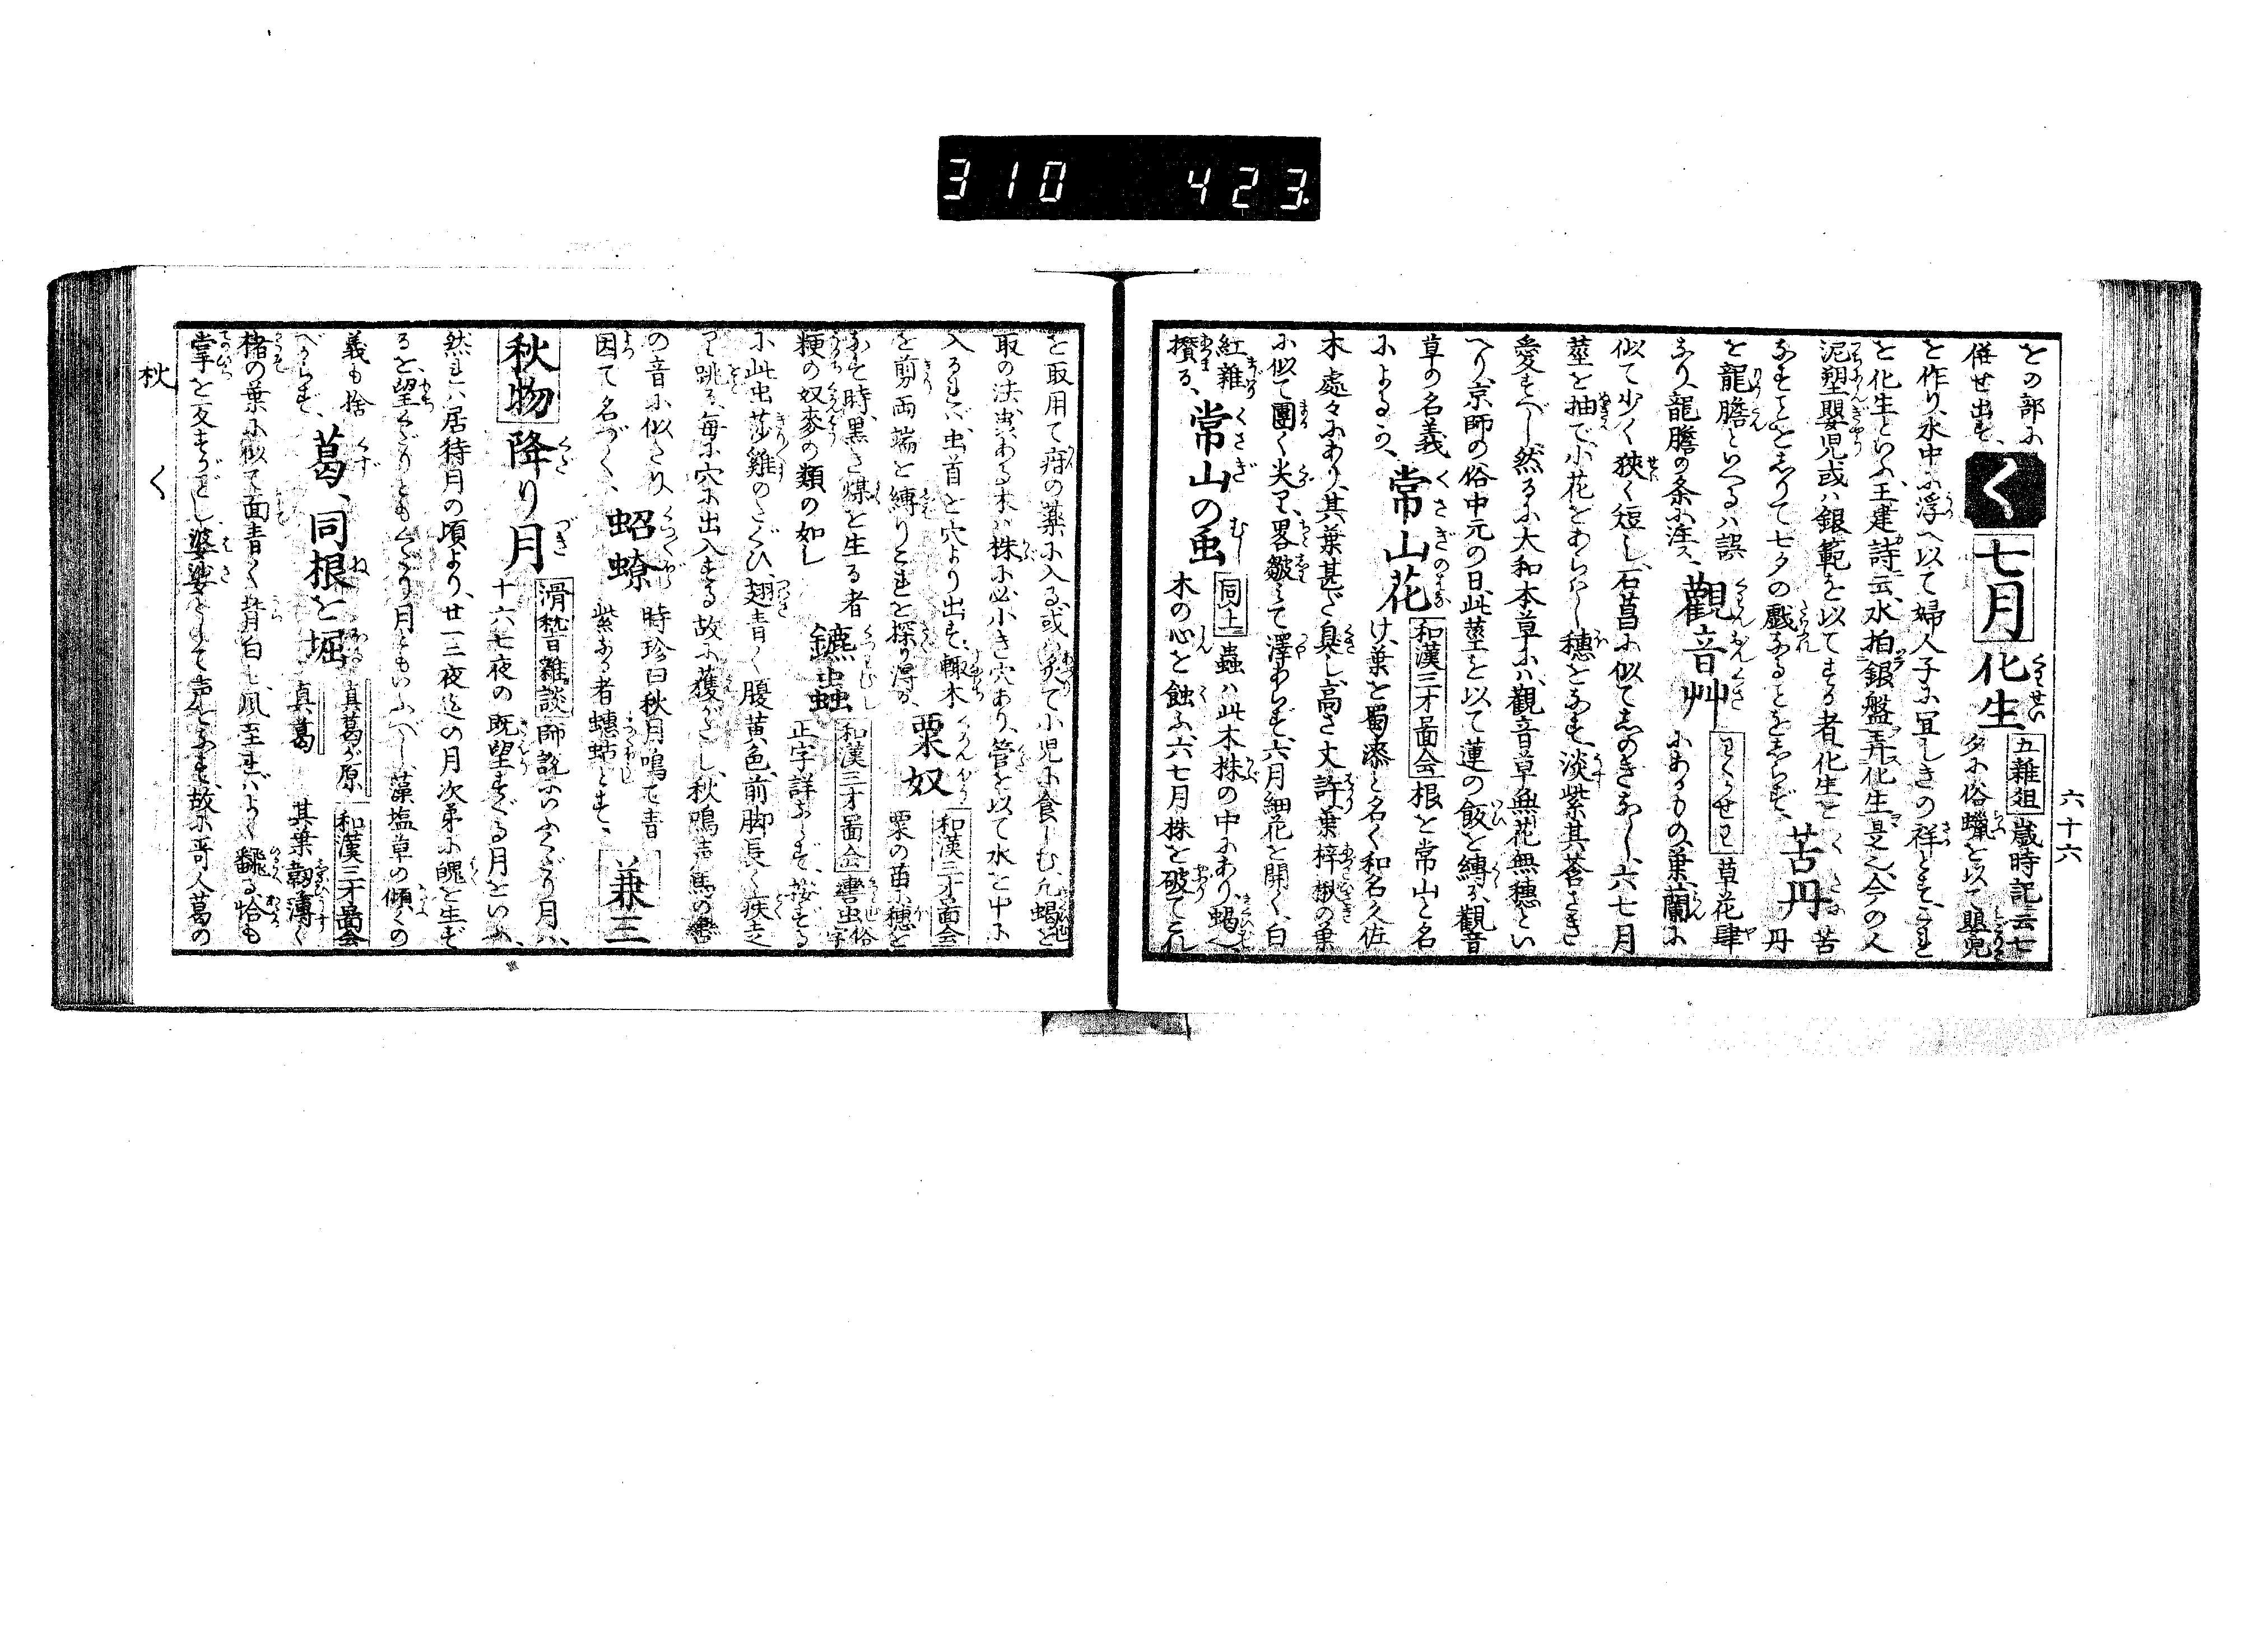 310 423
六十六
との部に
併せ出す、く 七月 化生 五雜俎 歳時記云七夕に俗蠟を以て嬰兒
を作り、水中に浮へ以て婦人子に宜しきの祥とす、これ
を化生といふ、王建詩云、水拍銀盤弄化生是也、今の人
泥塑嬰児或ハ銀範を以てする者化生と
なすことをしりて七夕の戯なるとをしらず、苦丹 苦丹
を龍膽といへるハ誤
なり、龍膽の条に注ス、觀音艸 草花肆にあるもの、葉蘭に
似て少く狭く短し、石菖に似てしのぎなし、六七月
莖を抽で小花をあらハし穂をなす、淡紫其莟さき
愛すべし然るに大和本草にハ、觀音草無花無穂とい
へり、京師の俗中元の日、此莖を以て蓮の飯を縛る、觀音
草の名義
によるか、常山花 和漢三才圖会 根を常山と名け、葉を蜀漆と名く和名久佐
木處々にあり、其葉甚だ臭し、高さ丈許、葉梓楸の葉
に似て團く尖り、畧皺して澤あらず、六月細花を開く、白
紅雜
攅る、常山の虫 同上 蟲ハ此木株の中にあり、蝎也、木の心を蝕ふ、六七月株を破てこれ
を取用て疳の薬に入る、或ハ炙て小児に食しむ、凡蝎を
取の法、虫ある木ハ株に必小き穴あり、管を以て水を中に
入るれバ、虫首を穴より出す、
を剪、両端を縛りこれを探り得る、粟奴 和漢三才圖会 粟の苗に穂を
なす時、黒き煤を生る者
粳の奴麥の類の如し 䗪蟲 和漢三才圖会 正字詳ならず、按ずる
に此虫莎雞のたぐひ、翅青く腹黄色、前脚長く疾走
り跳る、毎に穴に出入する故に獲がたし、秋鳴声
の音に似たり、
因て名づく、蛁蟟 時珍曰秋月鳴て青紫なる者蟪蛄とす、兼三
秋物 降り月 滑稽雜談 師説にいふくだり月ハ、十六七夜の既望すぐる月をいふ、
然れハ居待月の頃より、廿二三夜迄の月次第に魄を生ず
るを、望くだりとも、くだり月ともいふべし、藻塩草の傾くの
義も捨
べからず、葛、同根を堀 真葛が原 真葛 和漢三才圖会 其葉靱薄く
楮の葉に似て面青く背白し、風至れバよく飜る、恰も
掌を反すがごとし、婆娑として声をなす、故に哥人葛の
秋 く